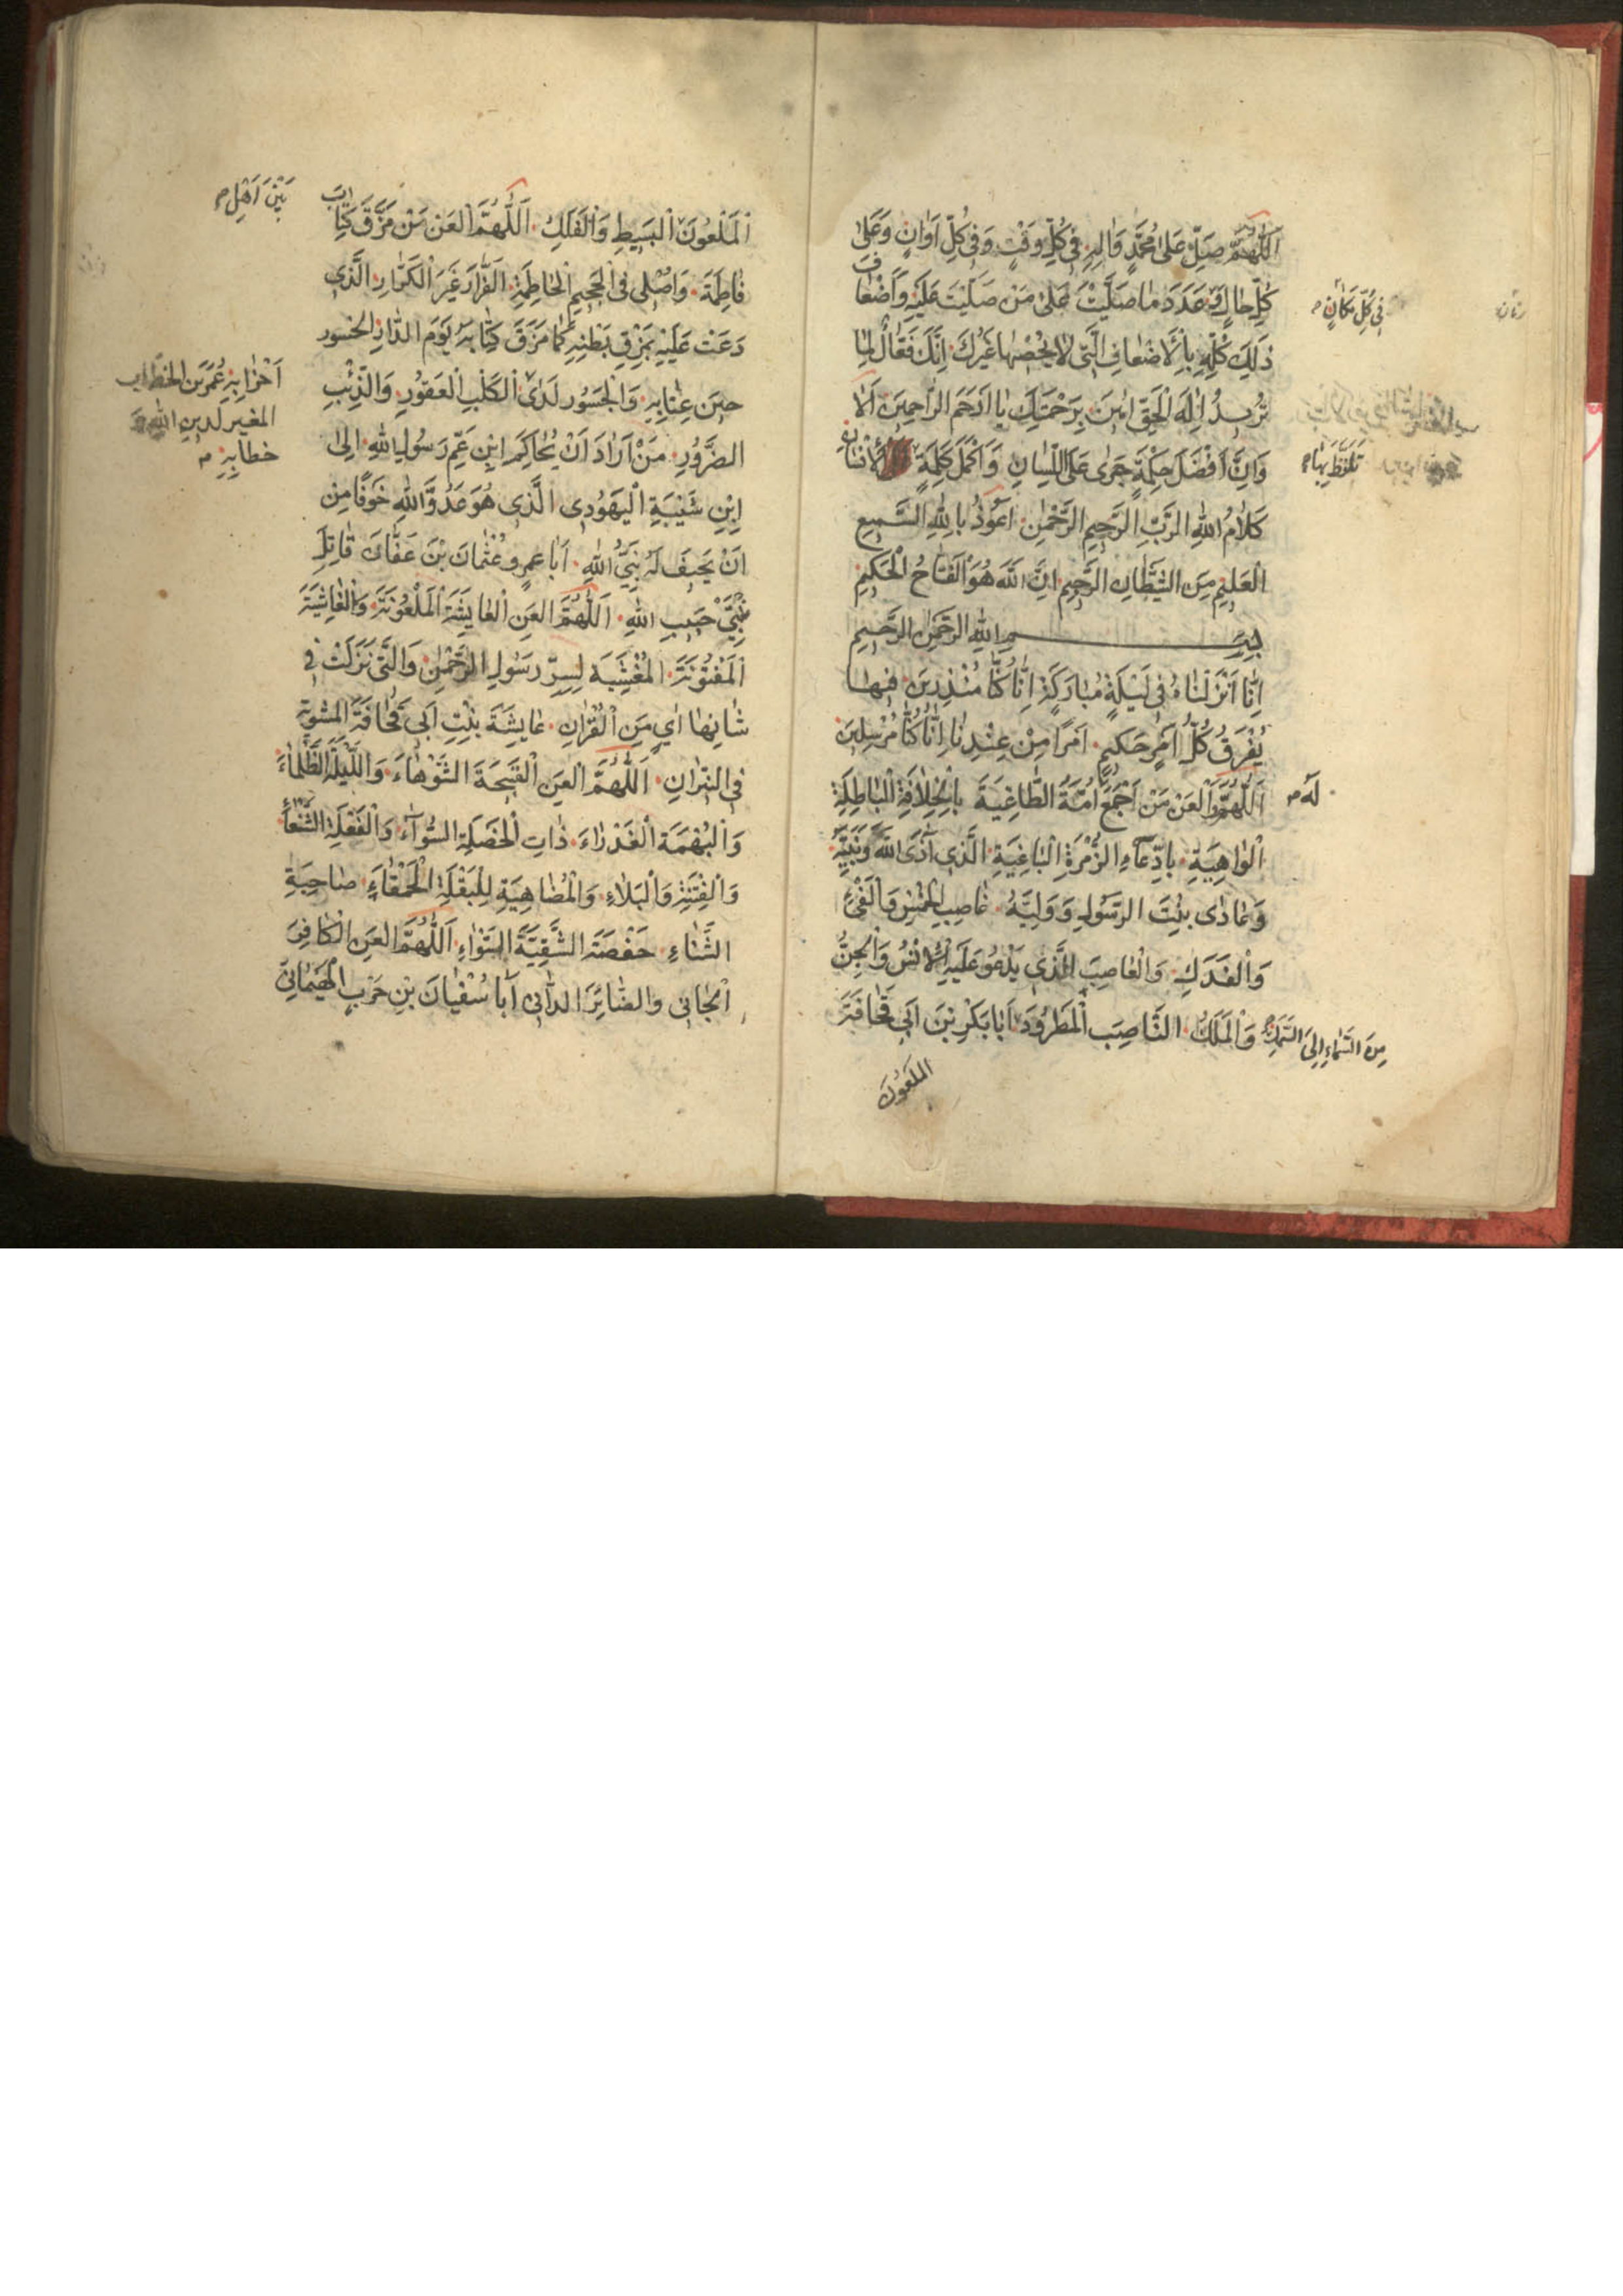 اَللّٰهُمَّ صَلِّ عَلىٰ مُحَمَّدٍ وَاٰلِهِ فى كُلِّ وَقْتٍ وَفى كُلِّ اَوَانٍ وَعَلىٰ
كُلِّ حٰالٍ عَدَدَ مٰا صَلَّيْتَ عَلىٰ مَنْ صَلَّيْتَ عَلَيْهِ وَاَضْعٰافَ
فى كُلِّ مَكٰانٍ
زمان
ذٰلِكَ كُلِّهِ بِالْاَضْعٰافِ الَّتى لٰا يُحْصيهٰا غَيْرُكَ اِنَّكَ فَعّٰالٌ لِمٰا
تُريدُ اِلٰهَ الْحَقِّ اٰمينَ بِرَحْمَتِكَ يٰا اَرْحَمَ الرّٰاحِمينَ اَلٰا
وَاِنَّ اَفْضَلَ حِكْمَةٍ جَرىٰ عَلَى اللِّسٰانِ وَاَكْمَلَ كَلِمَةٍ الْاِنْسٰانِ
تَلَفَّظَ بِهٰا
كَلٰامُ اللهِ الرَّبِّ الرَّحيمِ الرَّحْمٰنِ اَعُوذُ بِاللهِ السَّميعِ
الْعَليمِ مِنَ الشَّيْطٰانِ الرَّجيمِ اِنَّ اللهَ هُوَ الْفَتّٰاحُ الْحَكيمُ
بِسْمِ اللهِ الرَّحْمٰنِ الرَّحيمِ
اِنّٰا اَنْزَلْنٰاهُ فى لَيْلَةٍ مُبٰارَكَةٍ اِنّٰا كُنّٰا مُنْذِرينَ فيهٰا
يُفْرَقُ كُلُّ اَمْرٍ حَكيمٍ اَمْرًا مِنْ عِنْدِنٰا اِنّٰا كُنّٰا مُرْسِلينَ
اَللّٰهُمَّ وَالْعَنْ مَنْ اَجْمَعَ اُمَّةُ الطّٰاغِيَةَ بِالْخِلٰافَةِ الْبٰاطِلَةِ
لَهُ
الْوٰاهِيَةِ بِادِّعٰاءِ الزُّمْرَةِ الْبٰاغِيَةِ الَّذى اٰذَى اللهَ وَنَبِيَّهُ
وَعٰادىٰ بِنْتَ الرَّسُولِ وَوَلِيَّهُ غٰاصِبِ الْخُمْسِ وَالْفَىْءِ
وَالْفَدَكِ وَالْغٰاصِبَ الَّذى يَدْعُو عَلَيْهِ الْاِنْسُ وَالْجِنُّ
وَالْمَلَكُ النّٰاصِبَ الْمَطْرُودَ اَبٰا بَكْرِ بْنَ اَبى قُحٰافَةَ
مِنَ السَّمٰاءِ اِلَى السَّمَكِ
الملعُونَ
الْمَلْعُونَ الْبَسيطِ وَالْفَلَكِ اَللّٰهُمَّ الْعَنْ مَنْ مَزَّقَ كِتٰابَ
بَيْنَ اَهْلِ
فٰاطِمَةَ وَاَصْلى فى الْجَحيمِ الْحٰاطِمَةِ الْفَرّٰارَ غَيْرَ الْكَرّٰارِ الَّذى
دَعَتْ عَلَيْهِ بِمَزْقِ بَطْنِهِ كَمٰا مَزَّقَ كِتٰابَهُ يَوْمَ الدّٰارِ الخسور
حينَ عِتٰابِهِ وَالْجَسُور لَدَى الْكَلْبِ الْعَقُورِ وَالذِّئْبِ
اَحْزٰابِهِ عُمَرَ بن الخطاب
المغير لدين الله
خطابِهِ
الضَّرُورِ مَنْ اَرٰادَ اَنْ يُحٰاكِمَ ابْنِ عَمِّ رَسُولِ اللهِ اِلىٰ
ابْنِ شَيْبَةِ الْيَهُودِى الَّذى هُوَ عَدُوُّ اللهِ خَوْفًا مِنْ
اَنْ يَحيفَ لَهُ نَبِىُّ اللهِ اَبٰا عمرو عُثْمٰانَ بْنَ عَفّٰانَ قٰاتِلَ
حَبيبِ اللهِ اَللّٰهُمَّ الْعَنِ الْعٰايِشَةَ الْمَلْعُونَةَ وَالْغٰاشِيَةَ
الْمَفْتُونَةَ الْمُفْشِيَةَ لِسِرِّ رَسُولِ الرَّحْمٰنِ وَالَّتى نَزَلَتْ فى
شٰانِهٰا اٰىٌ مِنَ الْقُرْاٰنِ عٰايِشَةَ بِنْتِ اَبى قُحٰافَةَ
فى النّيرٰانِ اَللّٰهُمَّ الْعَنِ الْقَبيحَةَ الشَّوْهٰاءَ وَاللَّيْلَةَ الظَّلْمٰاءَ
ذٰاتِ الْخَصْلَةِ السُّوٓاءِ وَالْفَعْلَةِ الشَّنْعٰاءِ
وَالْفِتْنَةِ وَالْبَلٰاءِ وَالْمُضٰاهِيَةِ لِلْبَقْلَةِ الْحَمْقٰاءِ صٰاحِبَةِ
حَفْصَةَ الشَّقِيَّةَ اَللّٰهُمَّ الْعَنِ الْكٰافِرَ
الْجٰانى اَبٰا سُفْيٰانَ بْنِ حَرْبٍ